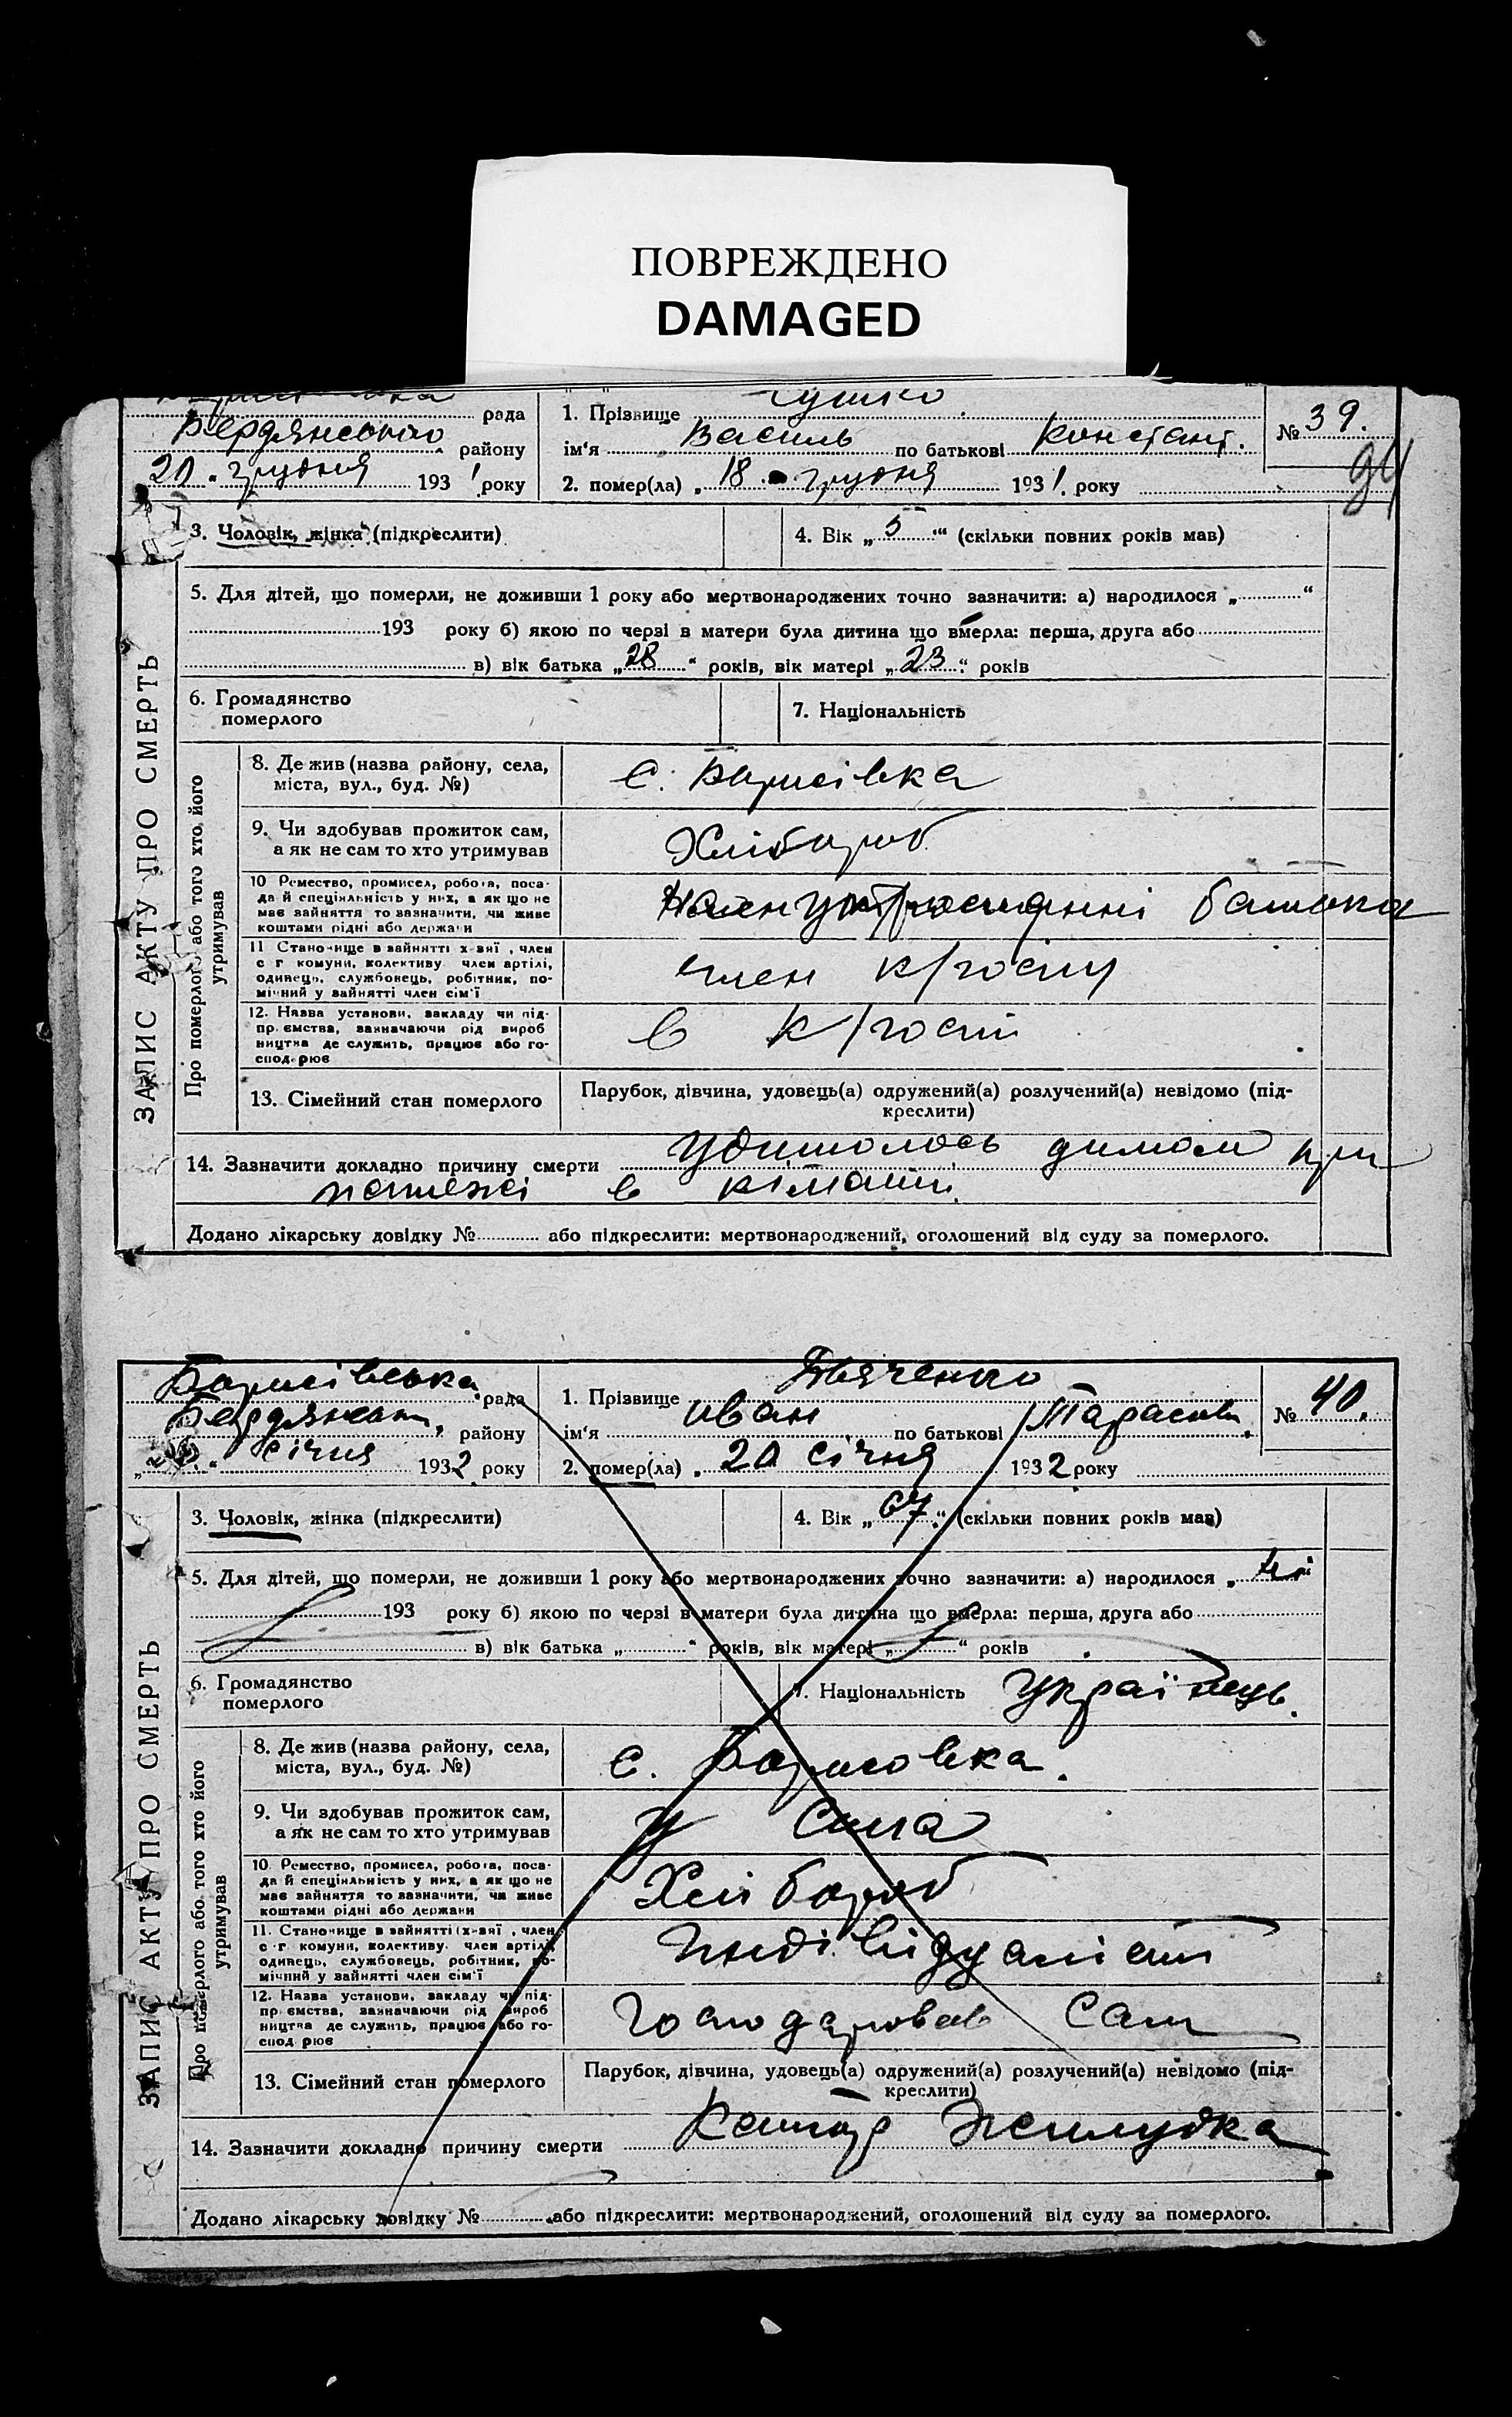 ПОВРЕЖДЕНО
DAMAGED
рада
Бердянського району
20 " грудня 1931 року
1. Прізвище
ім'я Василь по батькові Констант.
2. помер(ла) " 18 " грудня 1931. року
№ 39.
94
ЗАПИС АКТУ ПРО СМЕРТЬ
3. Чоловік, жінка (підкреслити)
4. Вік „ 5 “ (скільки повних років мав)
5. Для дітей, що померли, не доживши 1 року або мертвонароджених точно зазначити: а) народилося „ “
193 року б) якою по черзі в матери була дитина що вмерла: перша, друга або
в) вік батька „ 28 “ років, вік матері „ 23 “ років
6. Громадянство
померлого
7. Національність
Про померлого або того хто його
утримував
8. Де жив (назва району, села,
міста, вул., буд. №)
с. Борисівка
9. Чи здобував прожиток сам,
а як не сам то хто утримував
Хлібороб
10 Ремество, промисел, робота, поса-
да й спеціяльність у них, а як що не
має зайняття то зазначити, чи живе
коштами рідні або держави
утриманні батька
11 Становище в зайнятті х-вяї, член
с г комуни, колективу член артілі,
одинець, службовець, робітник, по-
мічний у зайнятті член сім'ї
член к/госпу
12. Назва установи, закладу чи під-
приємства, зазначаючи рід вироб
ництва де служить, працює або го-
сподарює
в к/госпі
13. Сімейний стан померлого
Парубок, дівчина, удовець(а) одружений(а) розлучений(а) невідомо (під-
креслити)
14. Зазначити докладно причину смерти димом при
в кімнаті.
Додано лікарську довідку № або підкреслити: мертвонароджений, оголошений від суду за померлого.
Борисівська рада
Бердянськ. району
січня 1932 року
1. Прізвище
ім'я Иван по батькові Тарасов.
2. помер(ла) " 20 січня 1932 року
№ 40.
ЗАПИС АКТУ ПРО СМЕРТЬ
3. Чоловік, жінка (підкреслити)
4. Вік „ 67 “ (скільки повних років мав)
5. Для дітей, що померли, не доживши 1 року або мертвонароджених точно зазначити: а) народилося „
193 року б) якою по черзі в матери була дитина що вмерла: перша, друга або
в) вік батька „ “ років, вік матері „ “ років
6. Громадянство
померлого
7. Національність Українець.
Про померлого або того хто його
утримував
8. Де жив (назва району, села,
міста, вул., буд. №)
с. Борисовка.
9. Чи здобував прожиток сам,
а як не сам то хто утримував
у сина
10. Ремество, промисел, робота, поса-
да й спеціяльність у них, а як що не
має зайняття то зазначити, чи живе
коштами рідні або держави
Хлібороб
11. Становище в зайнятті (х-вяї, член
с-г комуни, колективу член артілі,
одинець, службовець, робітник, по-
мічний у зайнятті член сім'ї
Індівідуаліст
12. Назва установи, закладу чи під-
приємства, зазначаючи рід вироб
ництва де служить, працює або го-
сподарює
Господарював сам
13. Сімейний стан померлого
Парубок, дівчина, удовець(а) одружений(а) розлучений(а) невідомо (під-
креслити)
14. Зазначити докладно причину смерти желудка
Додано лікарську довідку № або підкреслити: мертвонароджений, оголошений від суду за померлого.